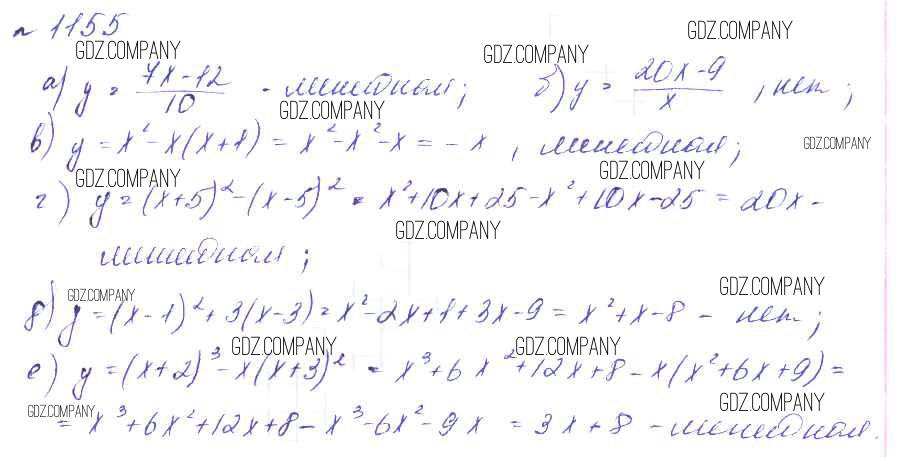 № 1155
GDZ.COMPANY GDZ.COMPANY GDZ.COMPANY
а) y = (7x-12)/10 - линейная; б) y = (20x-9)/x, нет;
GDZ.COMPANY
в) y = x² - x(x+1) = x² - x² - x = -x, линейная;
GDZ.COMPANY
GDZ.COMPANY GDZ.COMPANY
г) y = (x+5)² - (x-5)² = x²+10x+25-x²+10x-25 = 20x -
GDZ.COMPANY
линейная;
GDZ.COMPANY GDZ.COMPANY
д) y = (x-1)² + 3(x-3) = x²-2x+1+3x-9 = x²+x-8 - нет;
GDZ.COMPANY GDZ.COMPANY
е) y = (x+2)³ - x(x+3)² = x³+6x²+12x+8-x(x²+6x+9) =
GDZ.COMPANY GDZ.COMPANY
= x³+6x²+12x+8-x³-6x²-9x = 3x+8 - линейная.